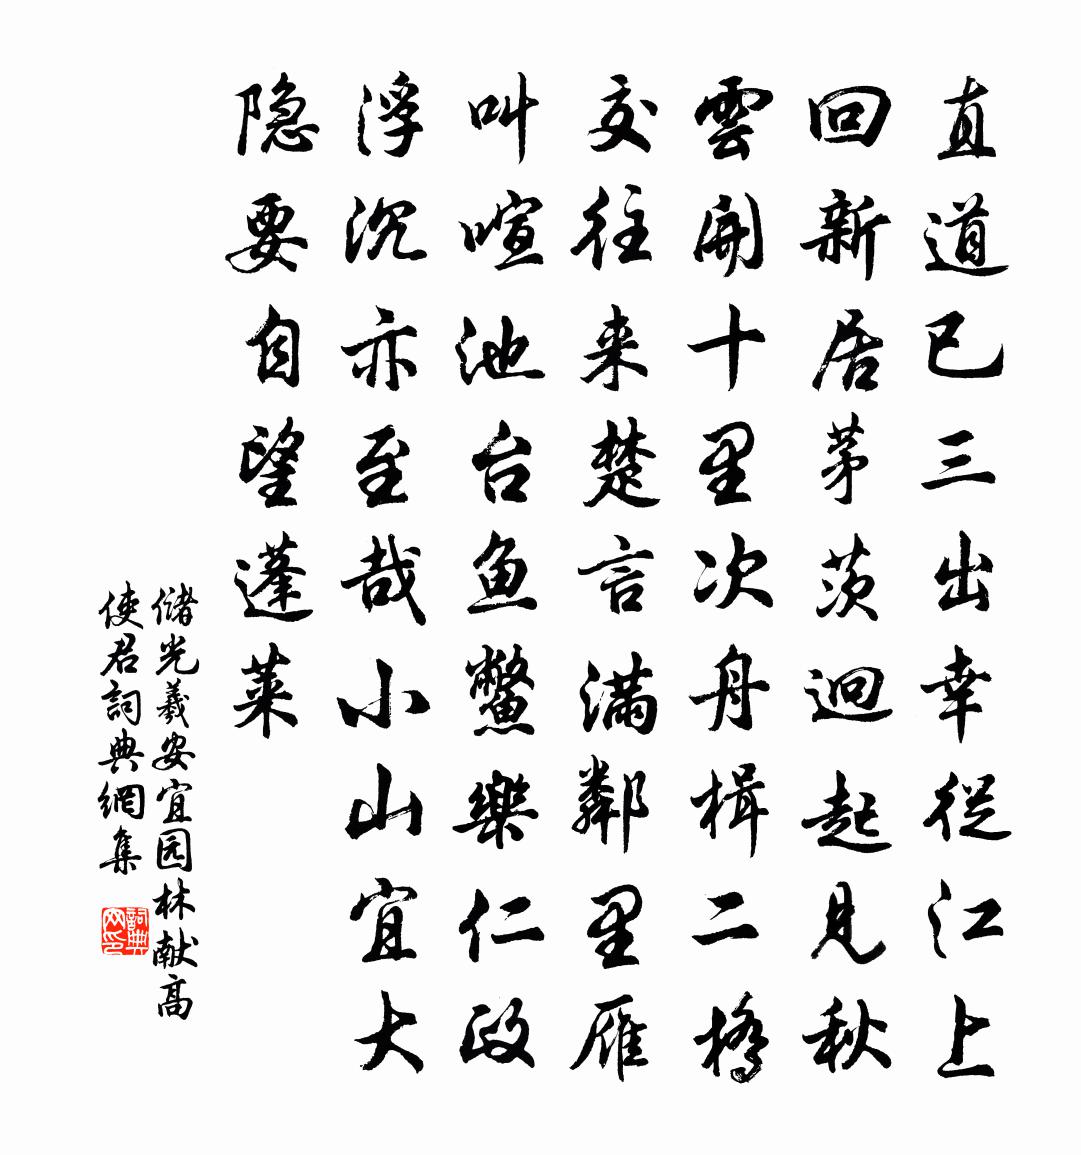 直道已三出幸從江上
回新居茅茨迥起見秋
雲開十里次舟楫二橋
交往来楚言满鄰里雁
叫喧池台鱼鳖樂仁政
浮沉亦至哉小山宜大
隐要自望蓬莱
儲光羲安宜园林献高
使君詞典網集
詞典网印